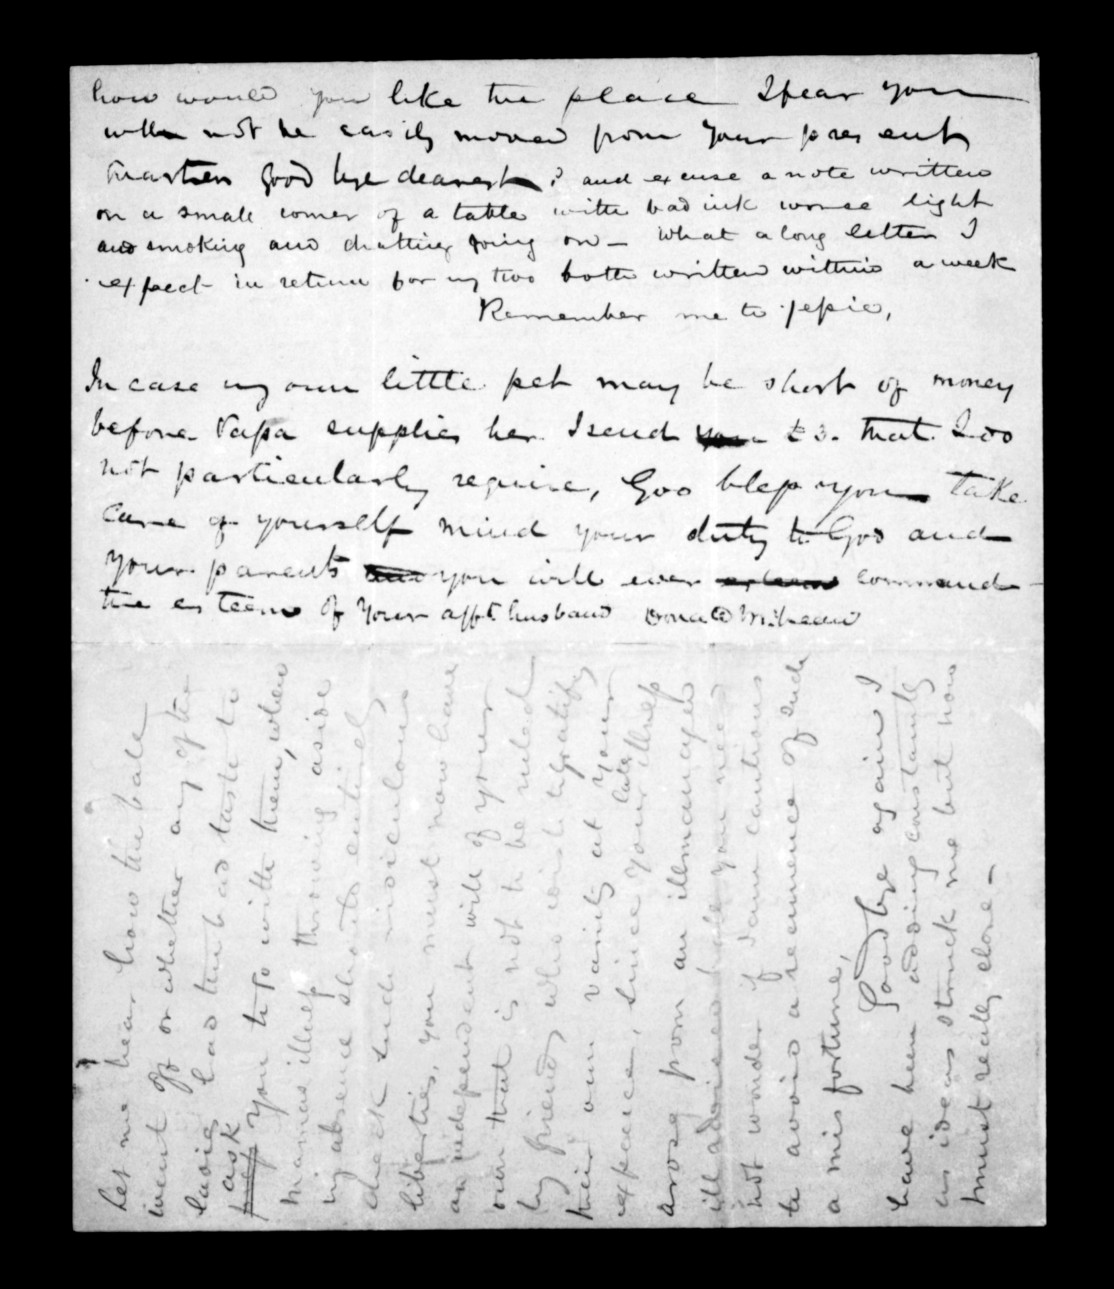 how would you like the place I fear you
will not be easily moved from your present
quarters good bye dearest & and excuse a note written
on a small corner of a table with bad ink worse light
and smoking and chatting going on - what a long letter I
expect in return for my two both written within a week
Remember me to Jessie,
In case my own little pet may be short of money
before Papa supplies her I send you £3. that I do
not particularly require, God bless you take
care of yourself mind your duty to God and
your parents and you will ever esteem command
the esteem of your afft husband Donald McLean
Let me hear how the ball
went off or whether any of the
ladies had the bad taste to
ask
press you to go with them, when
mamas illness throwing aside
my absence should entirely
check such ridiculous
liberties, you must now have
an independent will of your
own that is not to be ruled
by friends who wish to gratify
their own vanity at your
expence, since your late illness
arose from an ill managed
ill advised ball you need
not wonder if I am cautious
to avoid a recurrence of such
a misfortune,
Good bye again I
have been adding constantly
as ideas struck me but now
must really close -